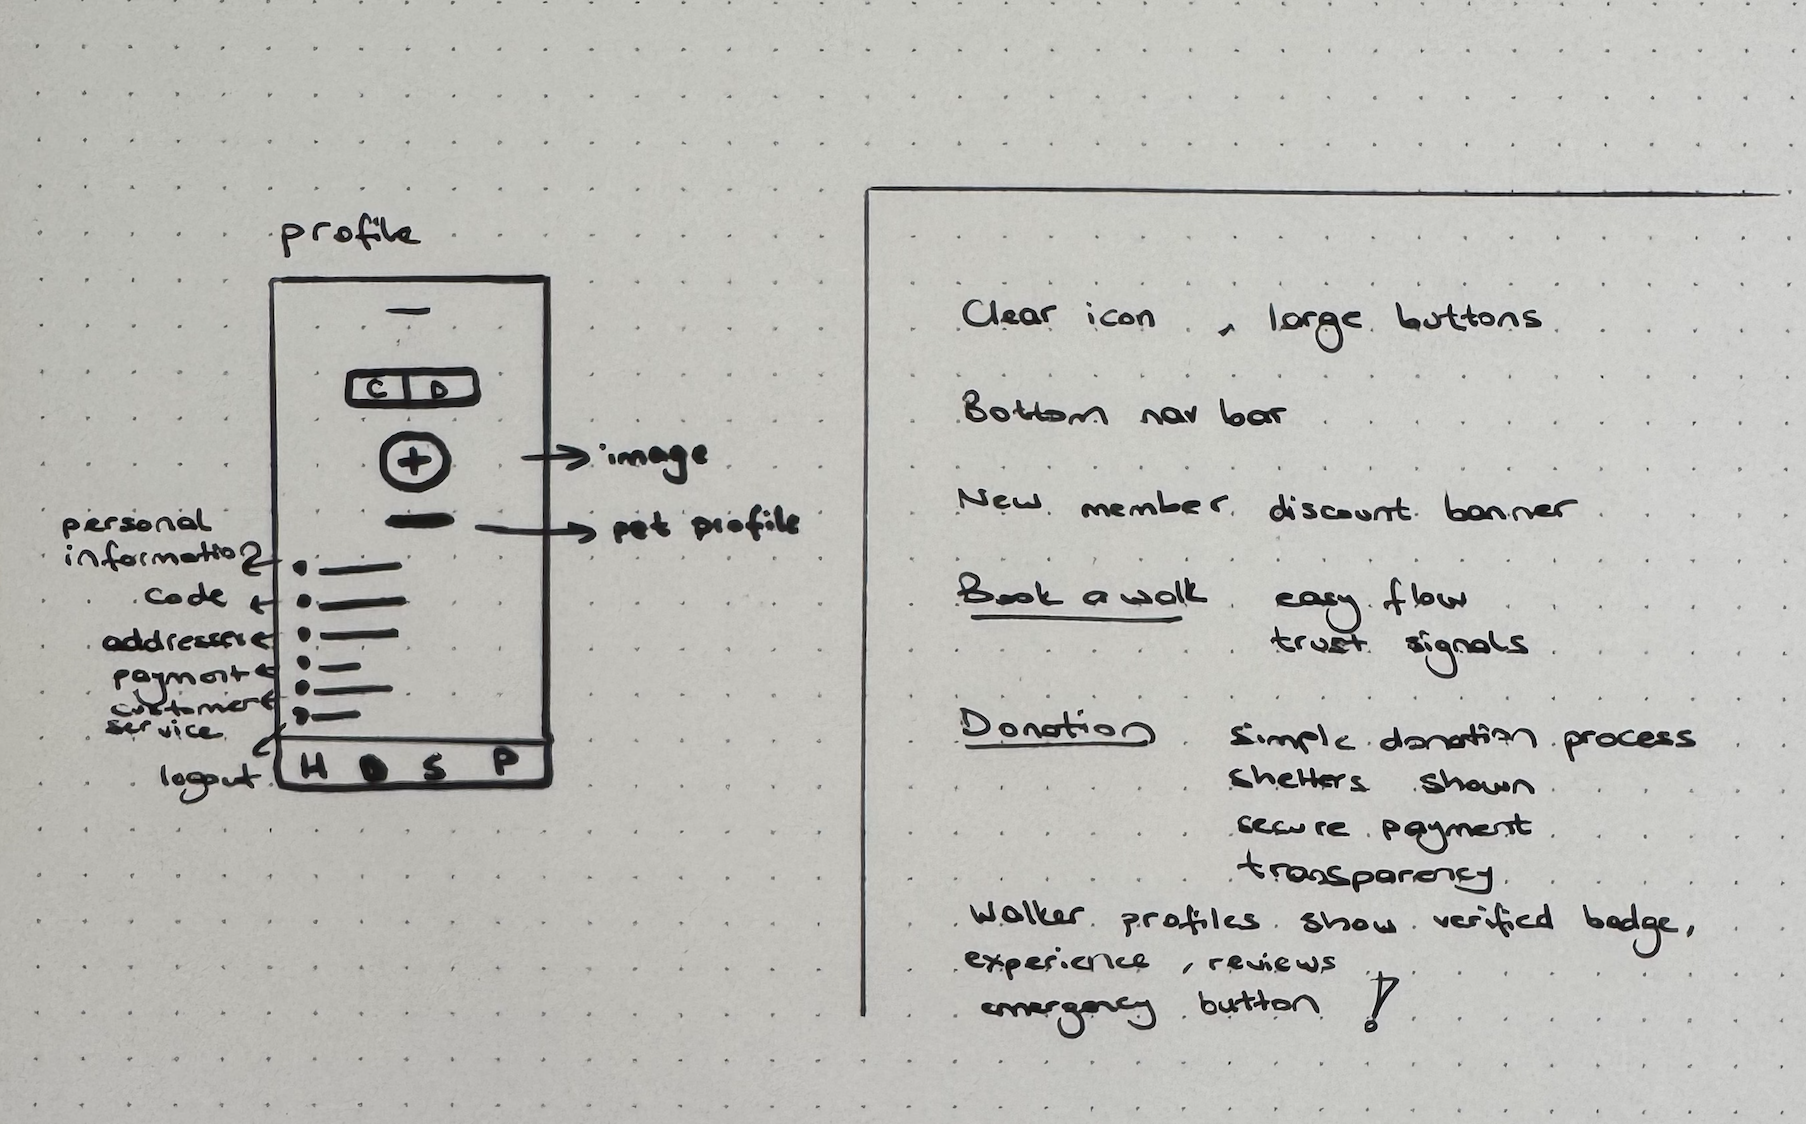 profile
C D
+
image
pet profile
personal
information
code
payment
customer
service
logout
H D S P
Clear icon, large buttons
Bottom nav bar
New member discount banner
Book a walk easy flow
trust signals
Donation simple donation process
shelters shown
secure payment
transparency
Walker profiles show verified badge,
experience, reviews
emergency button !